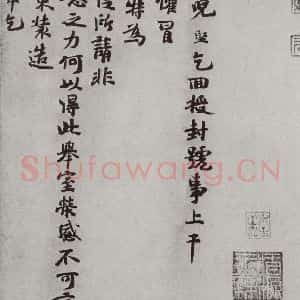 兒堅乞回授封號事上干
冒
特為
所請非
之力何以得此舉室榮感不可
裝造
乞
Shufawang.CN